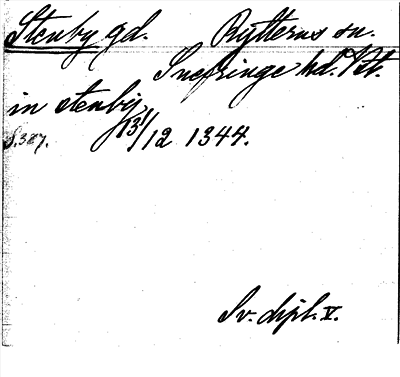 Stenby gd. Rytterns sn.
Snefringe hd. Vstm.
in stenby
S. 387. 13/12 1344.
Sv. dipl. V.